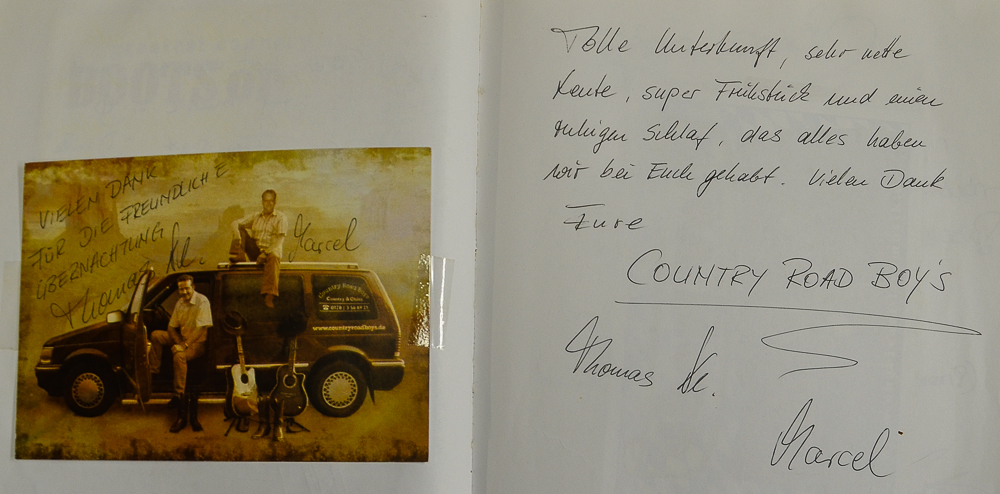 VIELEN DANK
FÜR DIE FREUNDLICHE
ÜBERNACHTUNG
Thomas
Marcel
Country Road Boys
Country & Oldies
www.countryroadboys.de
Tolle Unterkunft, sehr nette
Leute, super Frühstück und einen
ruhigen Schlaf, das alles haben
wir bei Euch gehabt. Vielen Dank
Eure
COUNTRY ROAD BOY'S
Thomas
Marcel